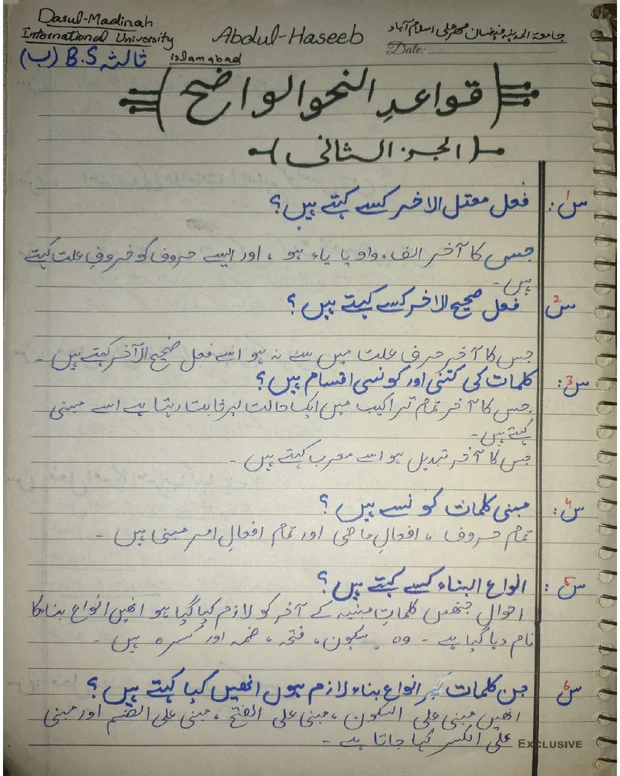 Darul-Madinah
International University
Islamabad
ثالثہ B.S (ب)
Abdul-Haseeb
جامعۃ المدینہ فیضان اسلام آباد
Date:
قواعدِ النحو الواضح
(الجزء الثانی)
س1: فعل معتل الاخر کسے کہتے ہیں؟
جس کا آخر الف، واو یا یاء ہو، اور ایسے حروف کو حروفِ علت کہتے
ہیں۔
س2 فعل صحیح الاخر کسے کہتے ہیں؟
جس کا آخر حرف علت میں سے نہ ہو اسے فعل صحیح الآخر کہتے ہیں
س3: کلمات کی کتنی اور کونسی اقسام ہیں؟
جس کا آخر تمام تراکیب میں ایک حالت پر ثابت رہتا ہے اسے مبنی
کہتے ہیں۔
جس کا آخر تبدیل ہو اسے معرب کہتے ہیں۔
س4: مبنی کلمات کونسے ہیں؟
تمام حروف، افعالِ ماضی اور تمام افعالِ امر مبنی ہیں۔
س5: انواع البناء کسے کہتے ہیں؟
احوال جنھیں کلماتِ مبنیہ کے آخر کو لازم کیا گیا ہو انھیں انواع بناء کا
نام دیا گیا ہے۔ وہ سکون، فتحہ، ضمہ اور کسرہ ہیں۔
س6 جن کلمات پر انواع بناء لازم ہوں انھیں کیا کہتے ہیں؟
انھیں مبنی علی السکون، مبنی علی الفتح، مبنی علی الضم اور مبنی
علی الکسر کہا جاتا ہے۔
EXCLUSIVE